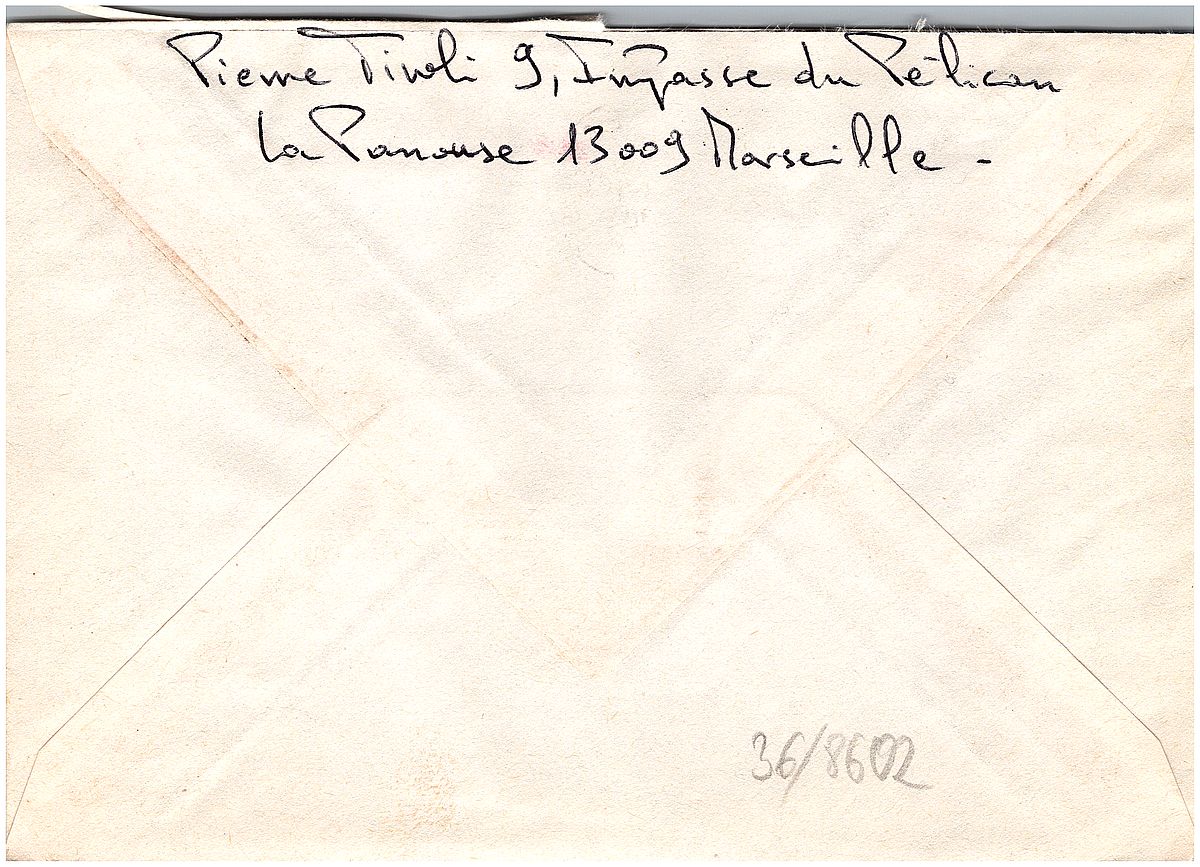 Pierre Tivoli 9, Impasse du Pélican
La Panouse 13009 Marseille -
36/8602